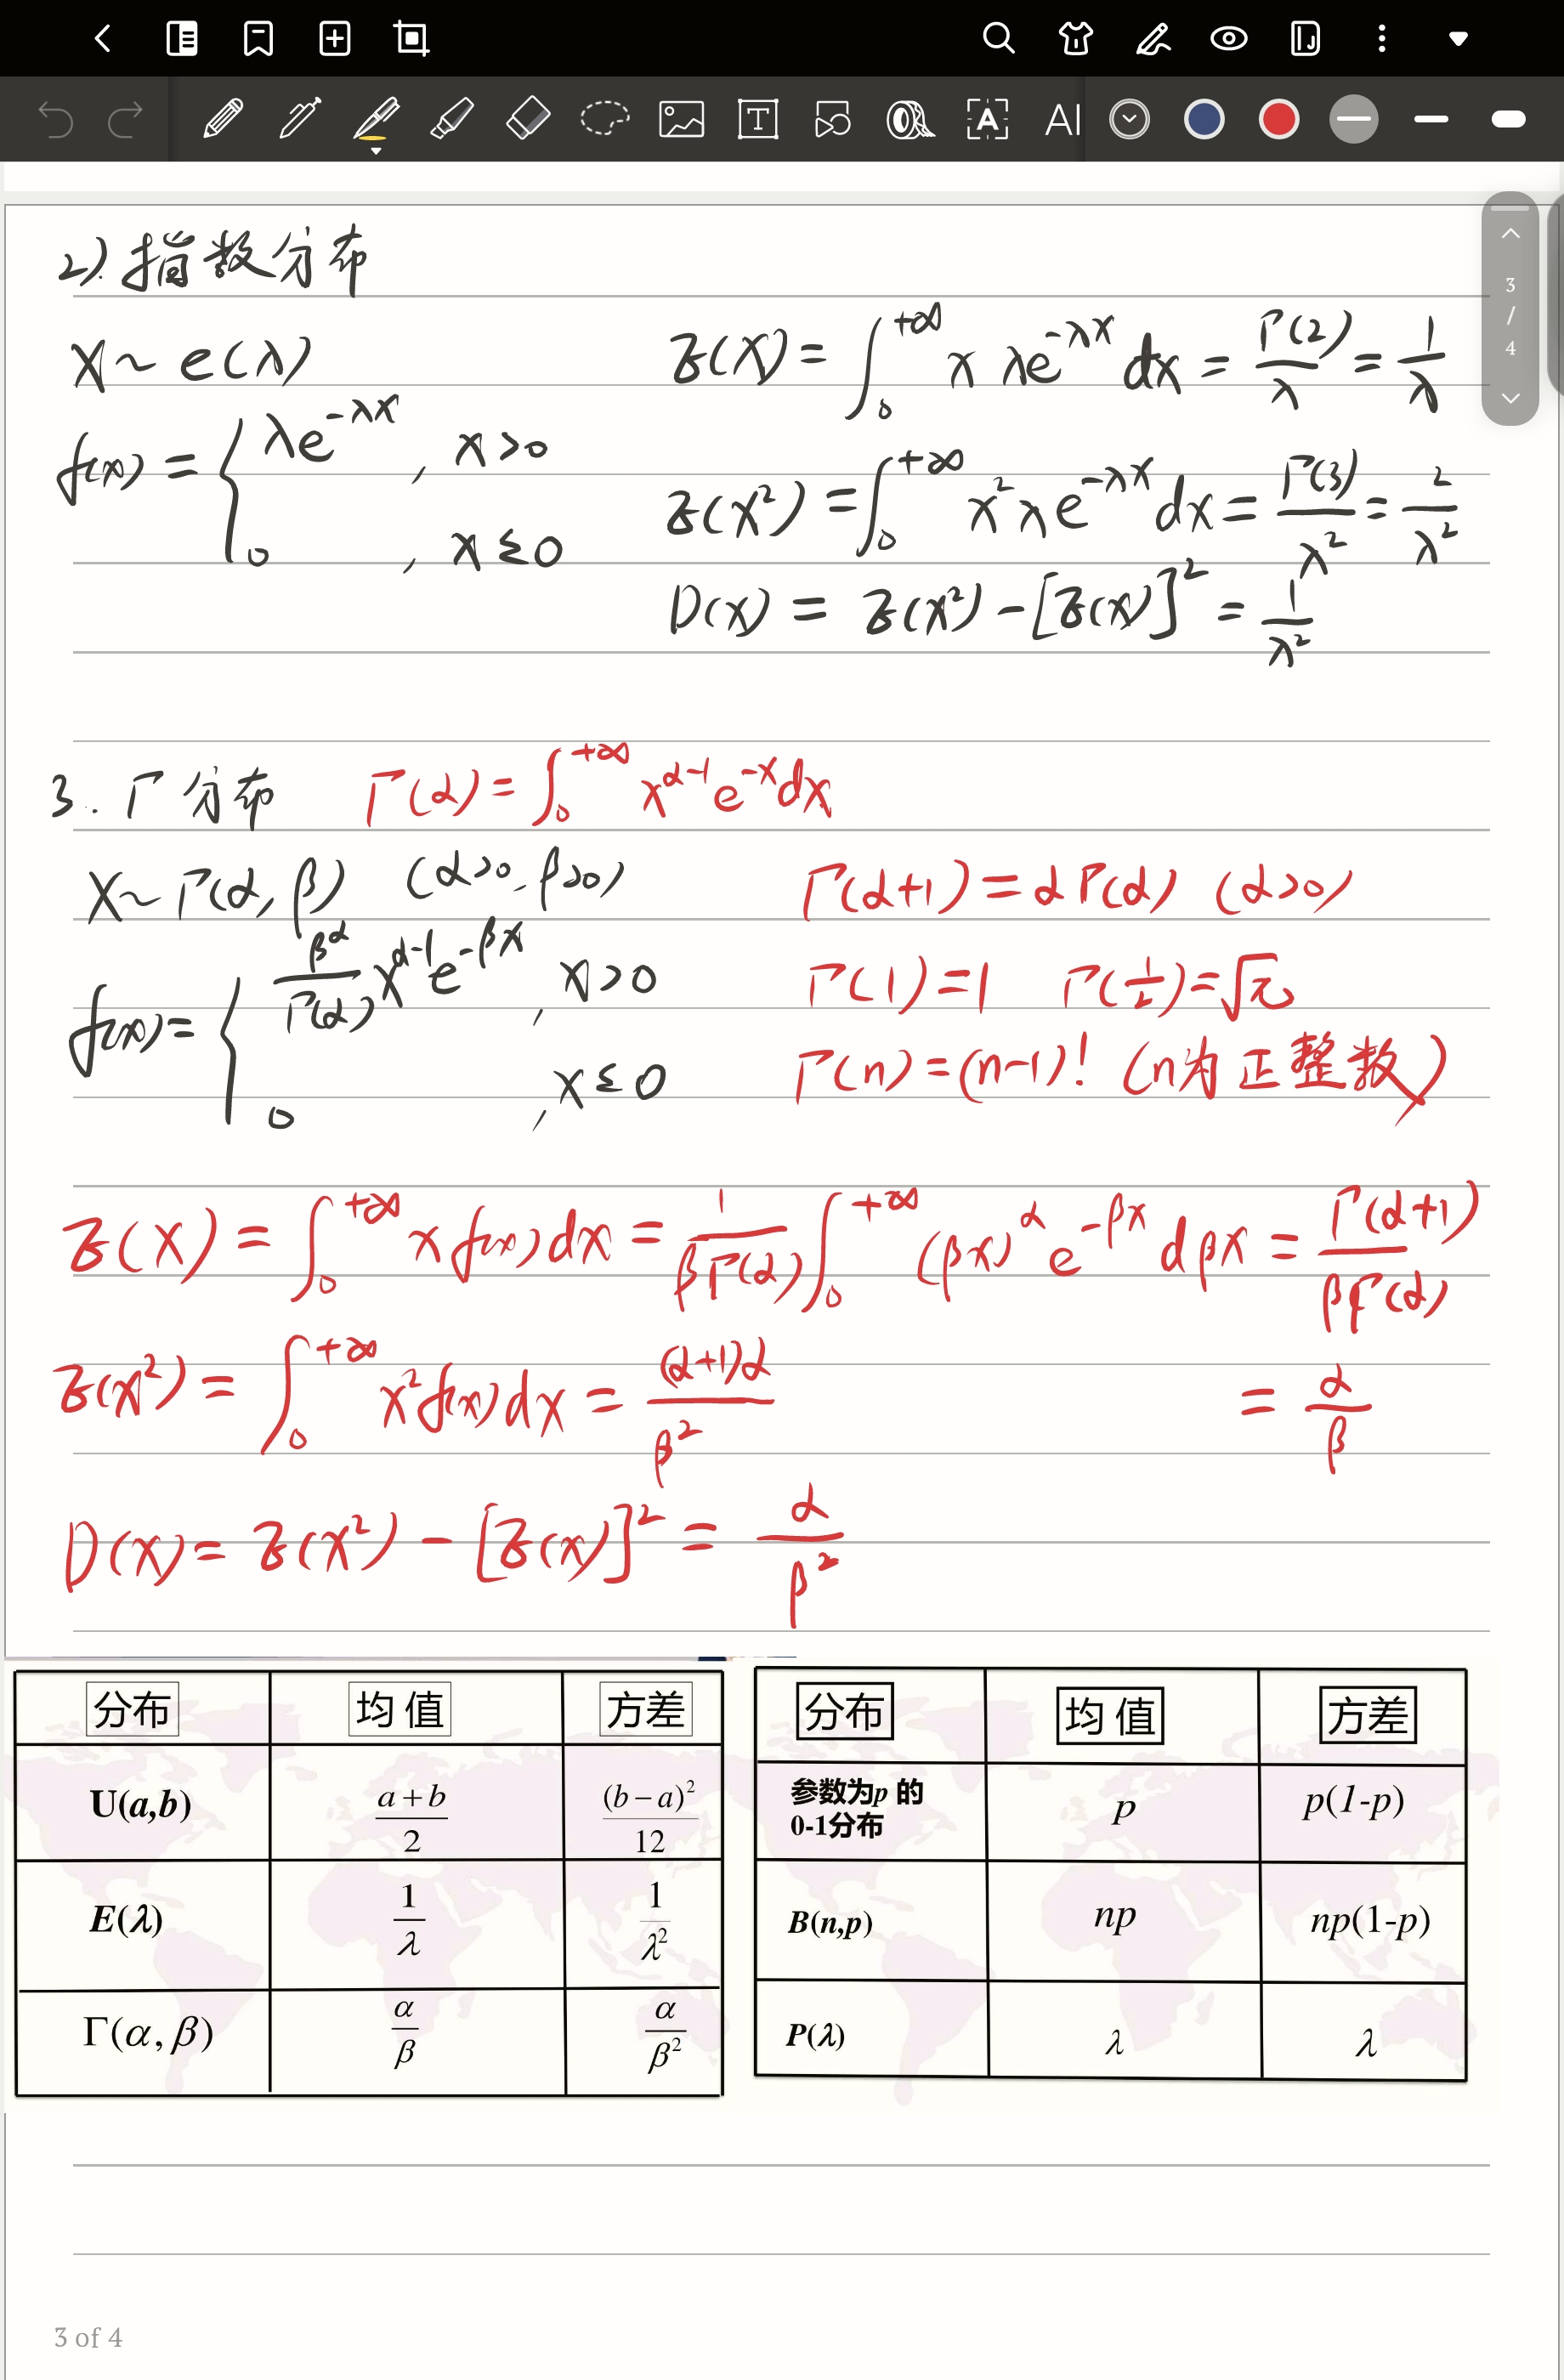 2). 指数分布
X ~ e(λ)
f(x) = { λe^{-λx} , x>0
0 , x≤0
E(X) = ∫_0^{+∞} x λe^{-λx} dx = Γ(2)/λ = 1/λ
E(X²) = ∫_0^{+∞} x² λe^{-λx} dx = Γ(3)/λ² = 2/λ²
D(X) = E(X²) - [E(X)]² = 1/λ²
3. Γ分布 Γ(α) = ∫_0^{+∞} x^{α-1} e^{-x} dx
X ~ Γ(α, β) (α>0, β>0)
f(x) = { β^α/Γ(α) x^{α-1} e^{-βx} , x>0
0 , x≤0
Γ(α+1) = αΓ(α) (α>0)
Γ(1)=1 Γ(1/2)=√π
Γ(n) = (n-1)! (n为正整数)
E(X) = ∫_0^{+∞} x f(x) dx = 1/(βΓ(α)) ∫_0^{+∞} (βx)^α e^{-βx} dβx = Γ(α+1)/(βΓ(α))
= α/β
E(X²) = ∫_0^{+∞} x² f(x) dx = (α+1)α/β²
D(X) = E(X²) - [E(X)]² = α/β²
分布 均值 方差
U(a,b) (a+b)/2 (b-a)²/12
E(λ) 1/λ 1/λ²
Γ(α, β) α/β α/β²
分布 均值 方差
参数为p 的
0-1分布 p p(1-p)
B(n,p) np np(1-p)
P(λ) λ λ
3
/
4
3 of 4